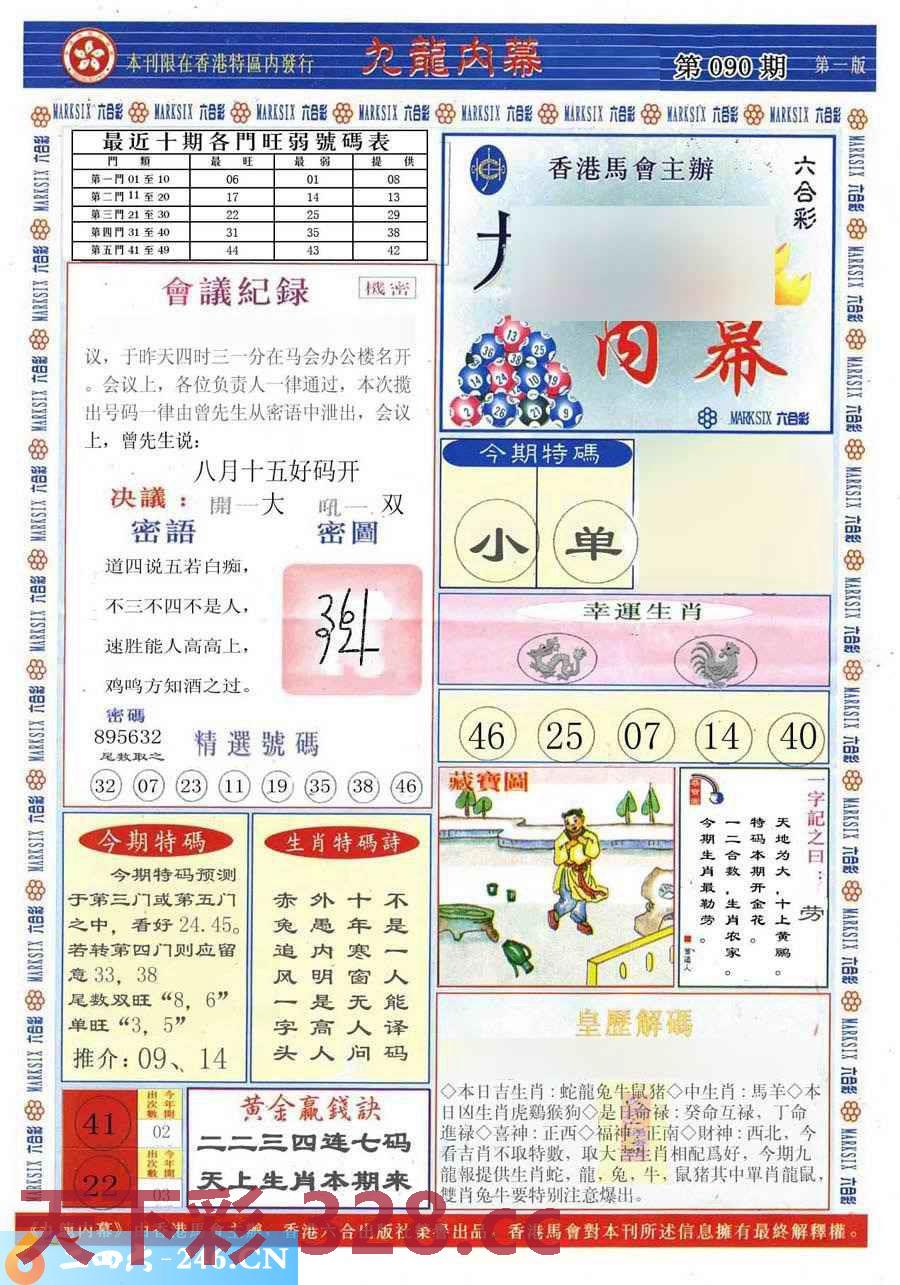 本刊限在香港特區内發行
九龍内幕
第 090 期
第一版
MARKSIX 六合彩
最近十期各門旺弱號碼表
門 類 最 旺 最 弱 提 供
第一門 01 至 10 06 01 08
第二門 11 至 20 17 14 13
第三門 21 至 30 22 25 29
第四門 31 至 40 31 35 38
第五門 41 至 49 44 43 42
香港馬會主辦
六合彩
内幕
13
36 38 25
14 24 10 19
2 26 21 9
MARKSIX 六合彩
會議紀録
機密
议，于昨天四时三一分在马会办公楼名开
。会议上，各位负责人一律通过，本次搅
出号码一律由曾先生从密语中泄出，会议
上，曾先生说：
八月十五好码开
决議：開一大 吼一双
密語
密圖
道四说五若白痴，
不三不四不是人，
速胜能人高高上，
鸡鸣方知酒之过。
密碼
895632
尾数取之
精選號碼
32 07 23 11 19 35 38 46
今期特碼
小 单
幸運生肖
46 25 07 14 40
今期特碼
今期特码预测
于第三门或第五门
之中，看好 24.45。
若转第四门则应留
意 33，38
尾数双旺“8，6”
单旺“3，5”
推介：09、14
生肖特碼詩
不是一人能译码
十年寒窗无人问
外愚内明是高人
赤兔追风一字头
藏寶圖
一字記之曰：
劳
天地为大，十上黄鹏。
特码本期开金花。
一二合数，生肖农家。
今期生肖最勤劳。
皇歷解碼
◇本日吉生肖：蛇龍兔牛鼠猪◇中生肖：馬羊◇本
日凶生肖虎鷄猴狗◇是日命禄：癸命互禄，丁命
進禄◇喜神：正西◇福神：正南◇財神：西北，今
看吉肖不取特數，取大吉生肖相配爲好，今期九
龍報提供生肖蛇，龍，兔，牛，鼠猪其中單肖龍鼠，
雙肖兔牛要特别注意爆出。
41
今年開
出次數
02
22
今年開
出次數
03
黄金贏錢訣
二二三四连七码
天上生肖本期来
《九龍内幕》由香港馬會主辦，香港六合出版社榮譽出品，香港馬會對本刊所述信息擁有最終解釋權。
天下彩 328.cc
246.CN